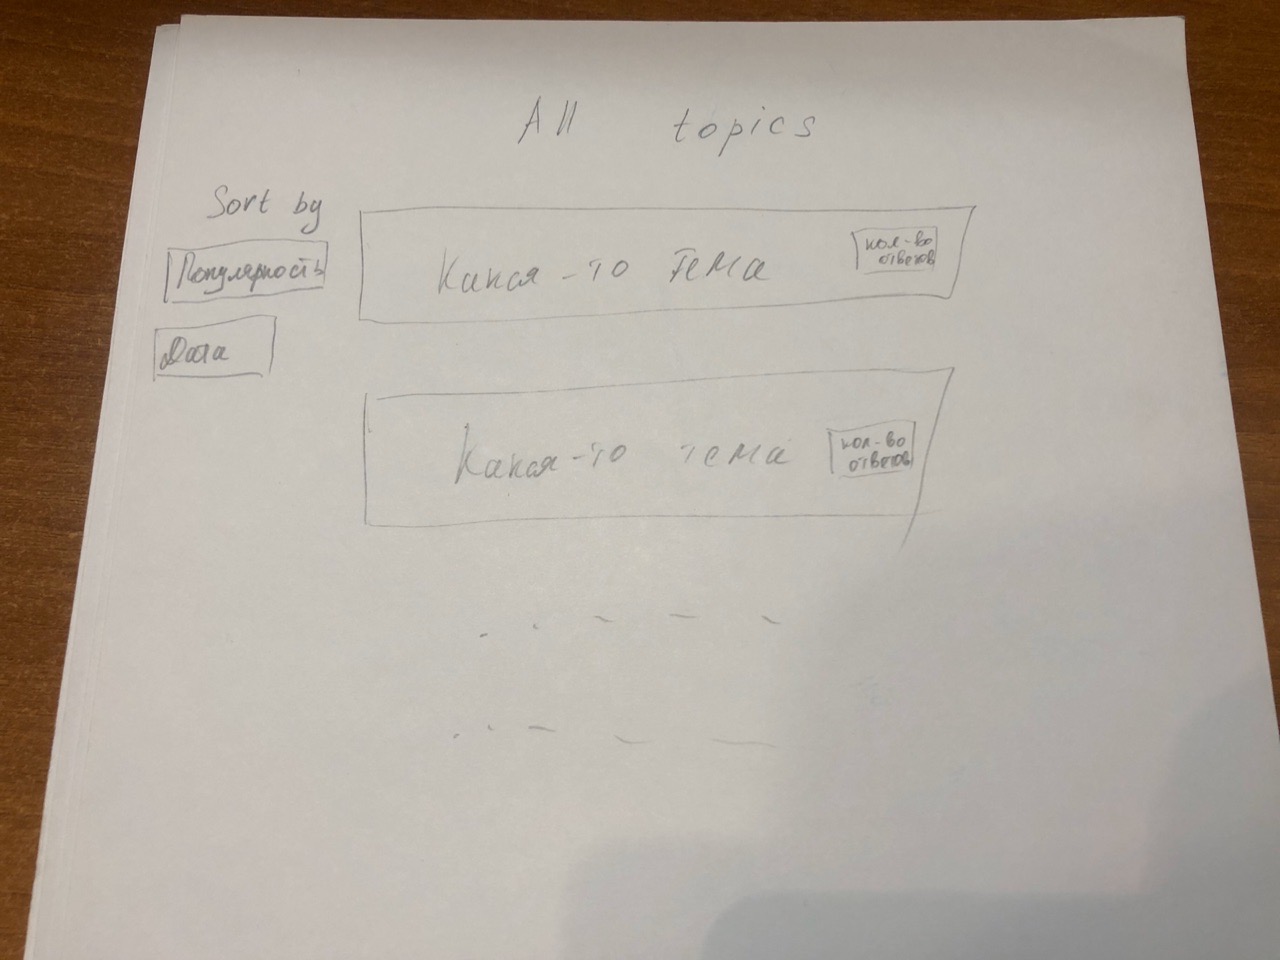 All topics
Sort by
Популярность
Дата
Какая-то тема
кол-во
ответов
Какая-то тема
кол-во
ответов